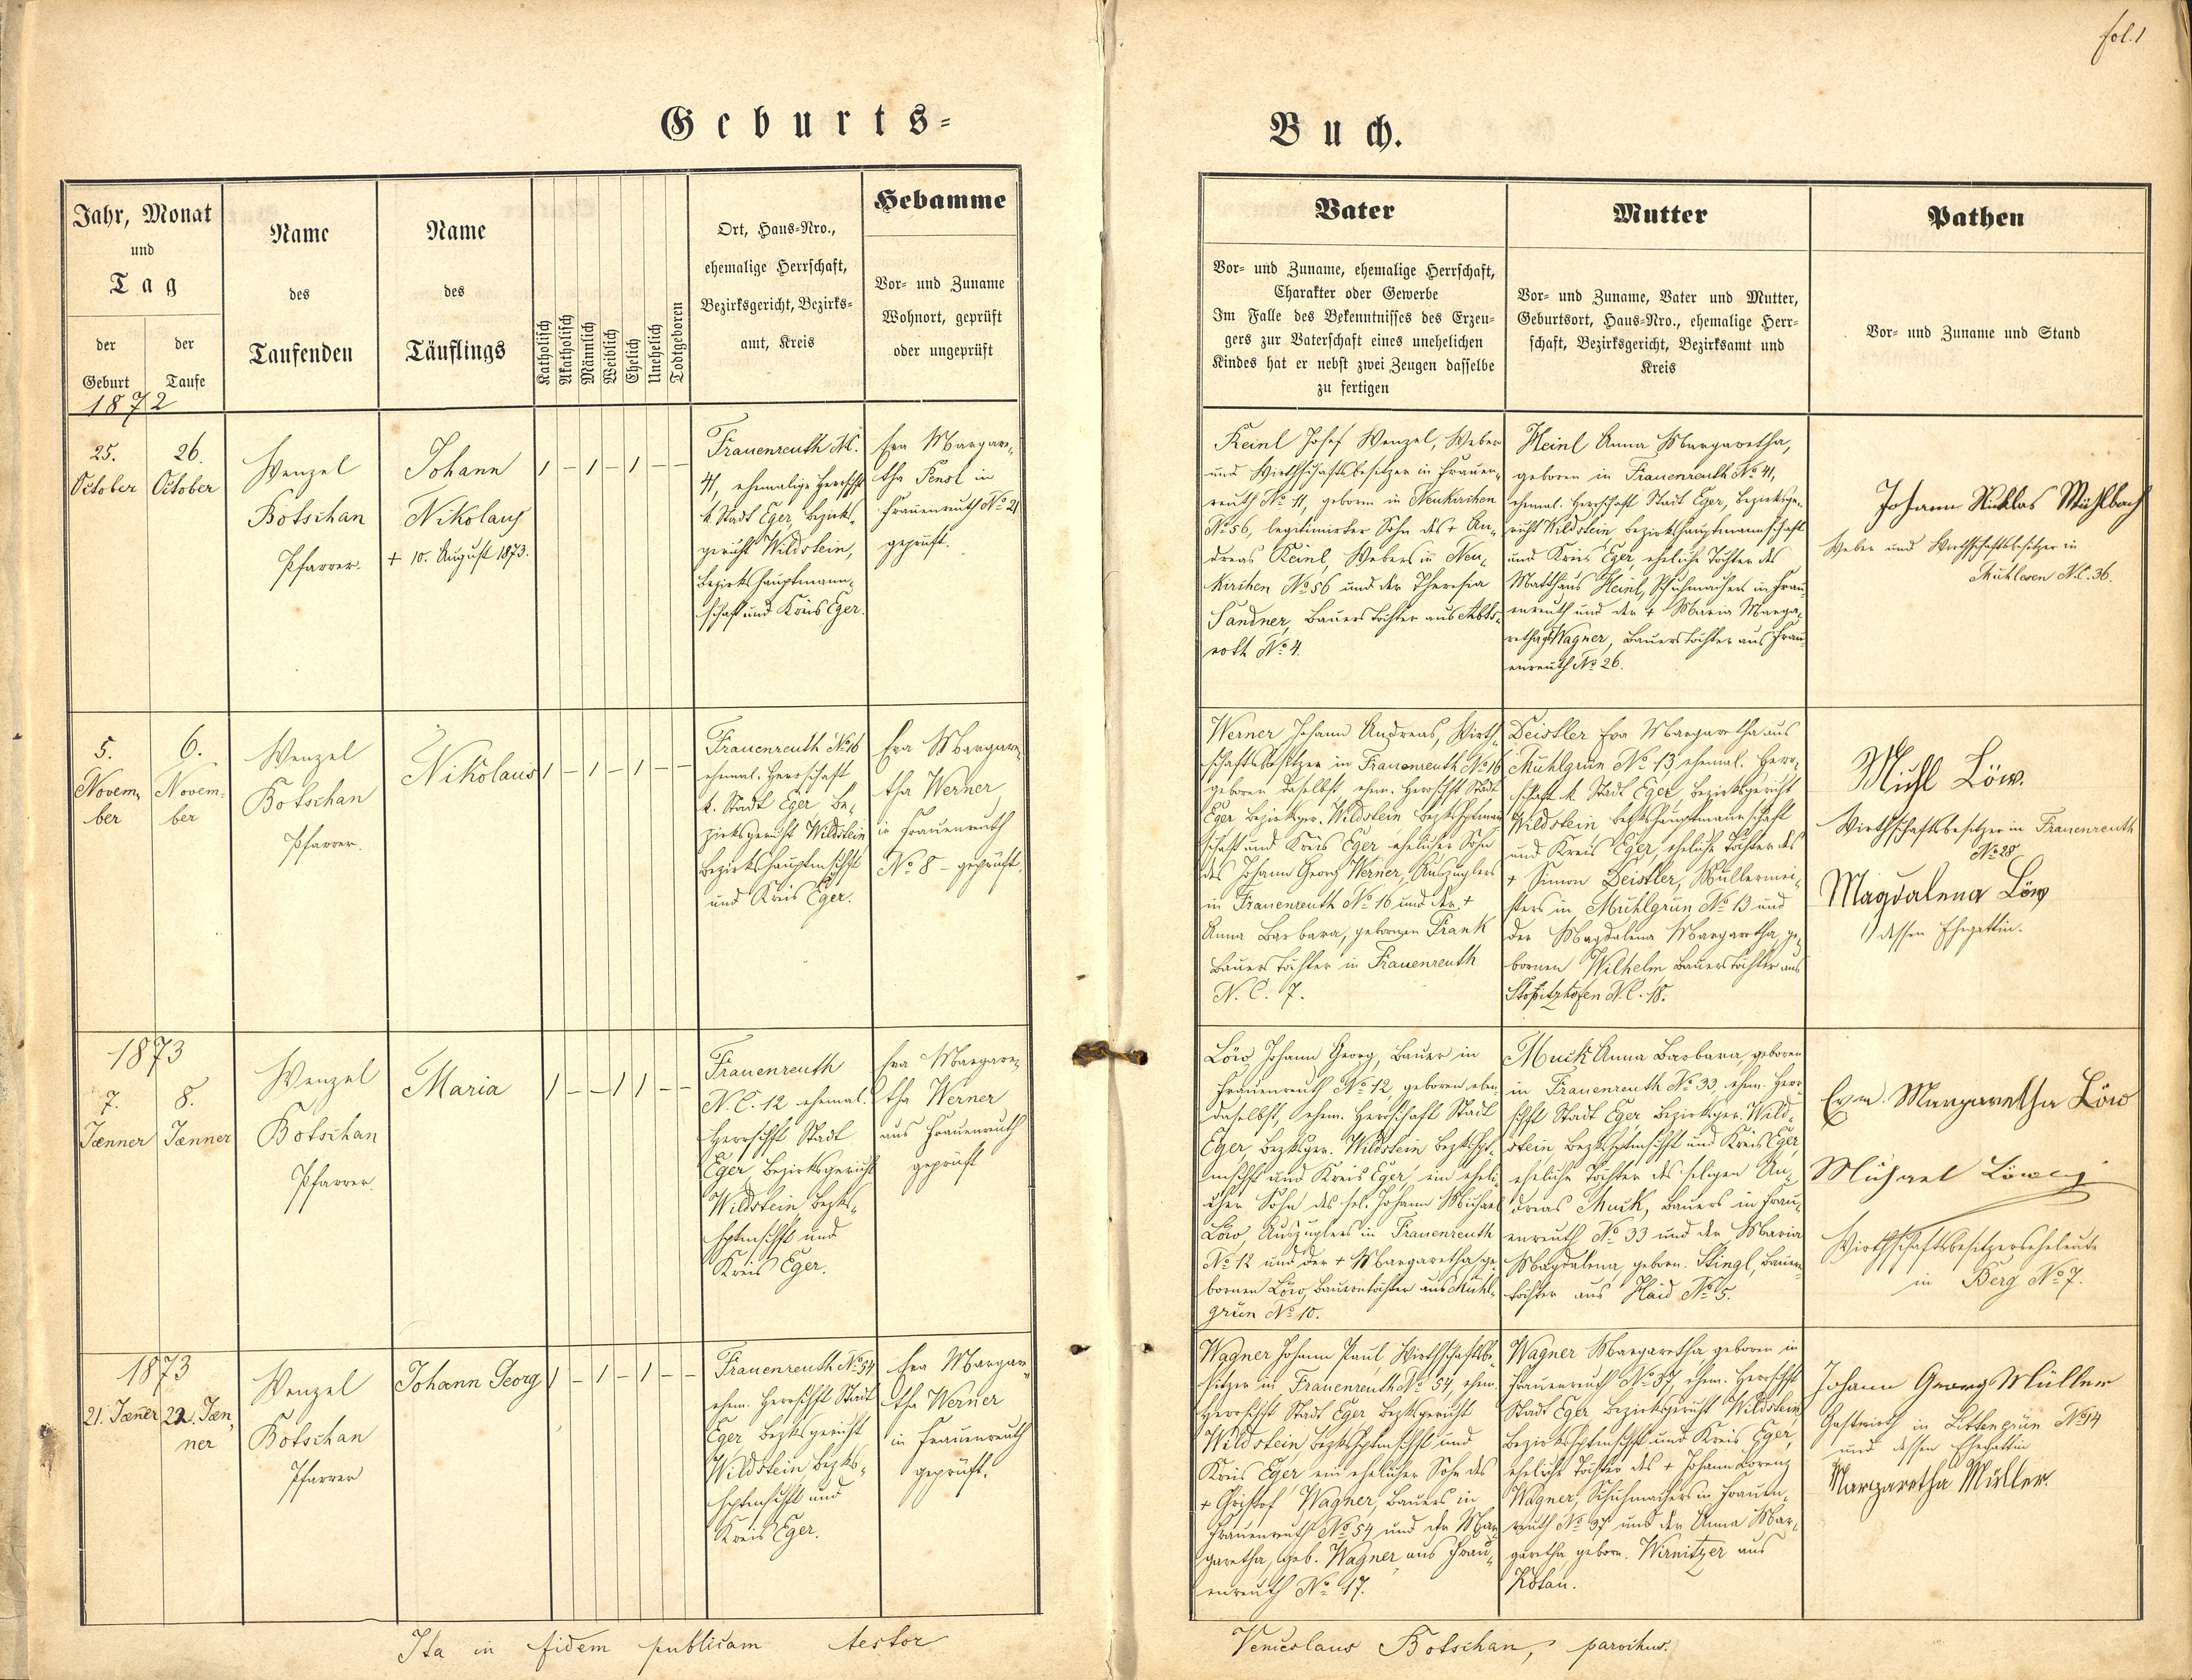 fol. 1
Geburts-
Buch.
Jahr, Monat
und
Tag
der
Geburt
der
Taufe
Name
des
Taufenden
Name
des
Täuflings
Katholisch
Akatholisch
Männlich
Weiblich
Ehelich
Unehelich
Todtgeboren
Ort, Haus-Nro.,
ehemalige Herrschaft,
Bezirksgericht, Bezirks-
amt, Kreis
Hebamme
Vor- und Zuname
Wohnort, geprüft
oder ungeprüft
Vater
Vor- und Zuname, ehemalige Herrschaft,
Charakter oder Gewerbe
Im Falle des Bekenntnisses des Erzeu-
gers zur Vaterschaft eines unehelichen
Kindes hat er nebst zwei Zeugen dasselbe
zu fertigen
Mutter
Vor- und Zuname, Vater und Mutter,
Geburtsort, Haus-Nro., ehemalige Herr-
schaft, Bezirksgericht, Bezirksamt und
Kreis
Pathen
Vor- und Zuname und Stand
1872
25.
October
26.
October
Wenzel
Botschan
Pfarrer.
Johann
Nikolaus
+ 10. August 1873.
1 – 1 – 1 – –
Frauenreuth N.
41, ehemalige Herrschft
k. Stadt Eger, Bezirks-
gericht Wildstein,
Bezirkshauptmann-
schaft und Kreis Eger.
Eva Margare-
tha Pensl in
Frauenreuth No 21
geprüft.
Keinl Josef Wenzel, Weber
und Wirthschaftsbesitzer in Frauen-
reuth No 11, geboren in Neukirchen
No 56, legitimirter Sohn des + An-
dreas Keinl, Webers in Neu-
kirchen No 56 und der Theresia
Sandner, Bauerstochter aus Abts-
roth No 4.
Heinl Anna Margaretha,
geboren in Frauenreuth No 41,
ehemal. Herrschaft Stadt Eger, Bezirksge-
richt Wildstein Bezirkshauptmannschaft
und Kreis Eger, eheliche Tochter des
Matthäus Heinl, Schuhmachers in Frau-
enreuth und der + Maria Marga-
retha Wagner, Bauerstochter aus Frau-
enreuth No 26.
Johann Niklas Mühlbach
Weber und Wirthschaftsbesitzer in
Mühlesen N.C. 36.
5.
Novem-
ber
6.
Novem-
ber
Wenzel
Botschan
Pfarrer.
Nikolaus
1 – 1 – 1 – –
Frauenreuth No 16
ehemal. Herrschaft
k. Stadt Eger Be-
zirksgericht Wildstein
Bezirkshauptmschft
und Kreis Eger.
Eva Margare-
tha Werner
in Frauenreuth
No 8 – geprüft.
Werner Johann Andreas, Wirth-
schaftsbesitzer in Frauenreuth No 16
geboren daselbst ehem. Herrschft Stadt
Eger Bezirksger. Wildstein Bezkshptman
schaft und Kreis Eger ehelicher Sohn
des Johann Georg Werner, Auszüglers
in Frauenreuth No 16 und der +
Anna Barbara, gebornen Frank
Bauerstochter in Frauenreuth
N. C. 7.
Deistler Eva Margaretha aus
Mühlgrün No 13, ehemal. Herr-
schaft k. Stadt Eger, Bezirksgericht
Wildstein, Bezkshauptmannschaft
und Kreis Eger, eheliche Tochter des
+ Simon Deistler, Müllermei-
sters in Mühlgrün No 13 und
der Magdalena Margaretha ge-
bornen Wilhelm, Bauerstochter aus
N.C. 18.
Michl Löw.
Wirthschaftsbesitzer in Frauenreuth
No 28
Magdalena Löw
dessen Ehegattin.
1873
7.
Jænner
8.
Jænner
Wenzel
Botschan
Pfarrer.
Maria
1 – – 1 1 – –
Frauenreuth
N. C. 12 ehemal.
Herrschft Stadt
Eger Bezirksgericht
Wildstein, Bezks-
hptmschft und
Kreis Eger.
Eva Margare-
tha Werner
aus Frauenreuth
geprüft
Löw Johann Georg, Bauer in
Frauenreuth No 12, geboren eben-
daselbst, ehem. Herrschaft Stadt
Eger, Bezksger. Wildstein Bezkshpt-
mschft und Kreis Eger, ein eheli-
cher Sohn des sel. Johann Michael
Löw, Auszüglers in Frauenreuth
No 12 und der + Margaretha ge-
bornen Löw, Bauerntochter aus Mühl-
grün No 10.
Muck Anna Barbara, geboren
in Frauenreuth No 33 ehem. Herr-
schft Stadt Eger, Bezirksger. Wild-
stein Bezkshptmschft und Kreis Eger,
eheliche Tochter des seligen An-
dreas Muck, Bauers in Frau-
enreuth No 33 und der Maria
Magdalena, geborn. Stingl, Bauern-
tochter aus Haid No 5.
Margaretha Löw
Michael Löw
Wirthschaftsbesitzerseheleute
in Berg No 7.
1873
21. Jæner
22. Jæn-
ner
Wenzel
Botschan
Pfarrer
Johann Georg
1 – 1 – 1 – –
Frauenreuth No 54
ehem. Herrschft Stadt
Eger Bezksgericht
Wildstein Bezks-
hptmschft und
Kreis Eger.
Eva Margare-
tha Werner
in Frauenreuth
geprüft.
Wagner Johann Paul, Wirthschaftsbe-
sitzer in Frauenreuth No 54, ehem.
Herrschft Stadt Eger Bezksgericht
Wildstein Bezkshptmschft und
Kreis Eger ein ehelicher Sohn des
+ Christof Wagner, Bauers in
Frauenreuth No 54 und der Mar-
garetha, geb. Wagner aus Frau-
enreuth No 17.
Wagner Margaretha, geboren in
Frauenreuth No 37, ehem. Herrschft
Stadt Eger Bezirksgericht Wildstein,
Bezirkshptmschft und Kreis Eger,
eheliche Tochter des + Johann Lorenz
Wagner, Schuhmachers in Frauen-
reuth No 37 und der Anna Mar-
garetha geborn. Wirnitzer aus
Johann Georg Müller
Gastwirth in Littengrün No 14
und dessen Ehegattin
Margaretha Müller.
Ita in fidem publicam testor
Venceslaus Botschan, parochus.